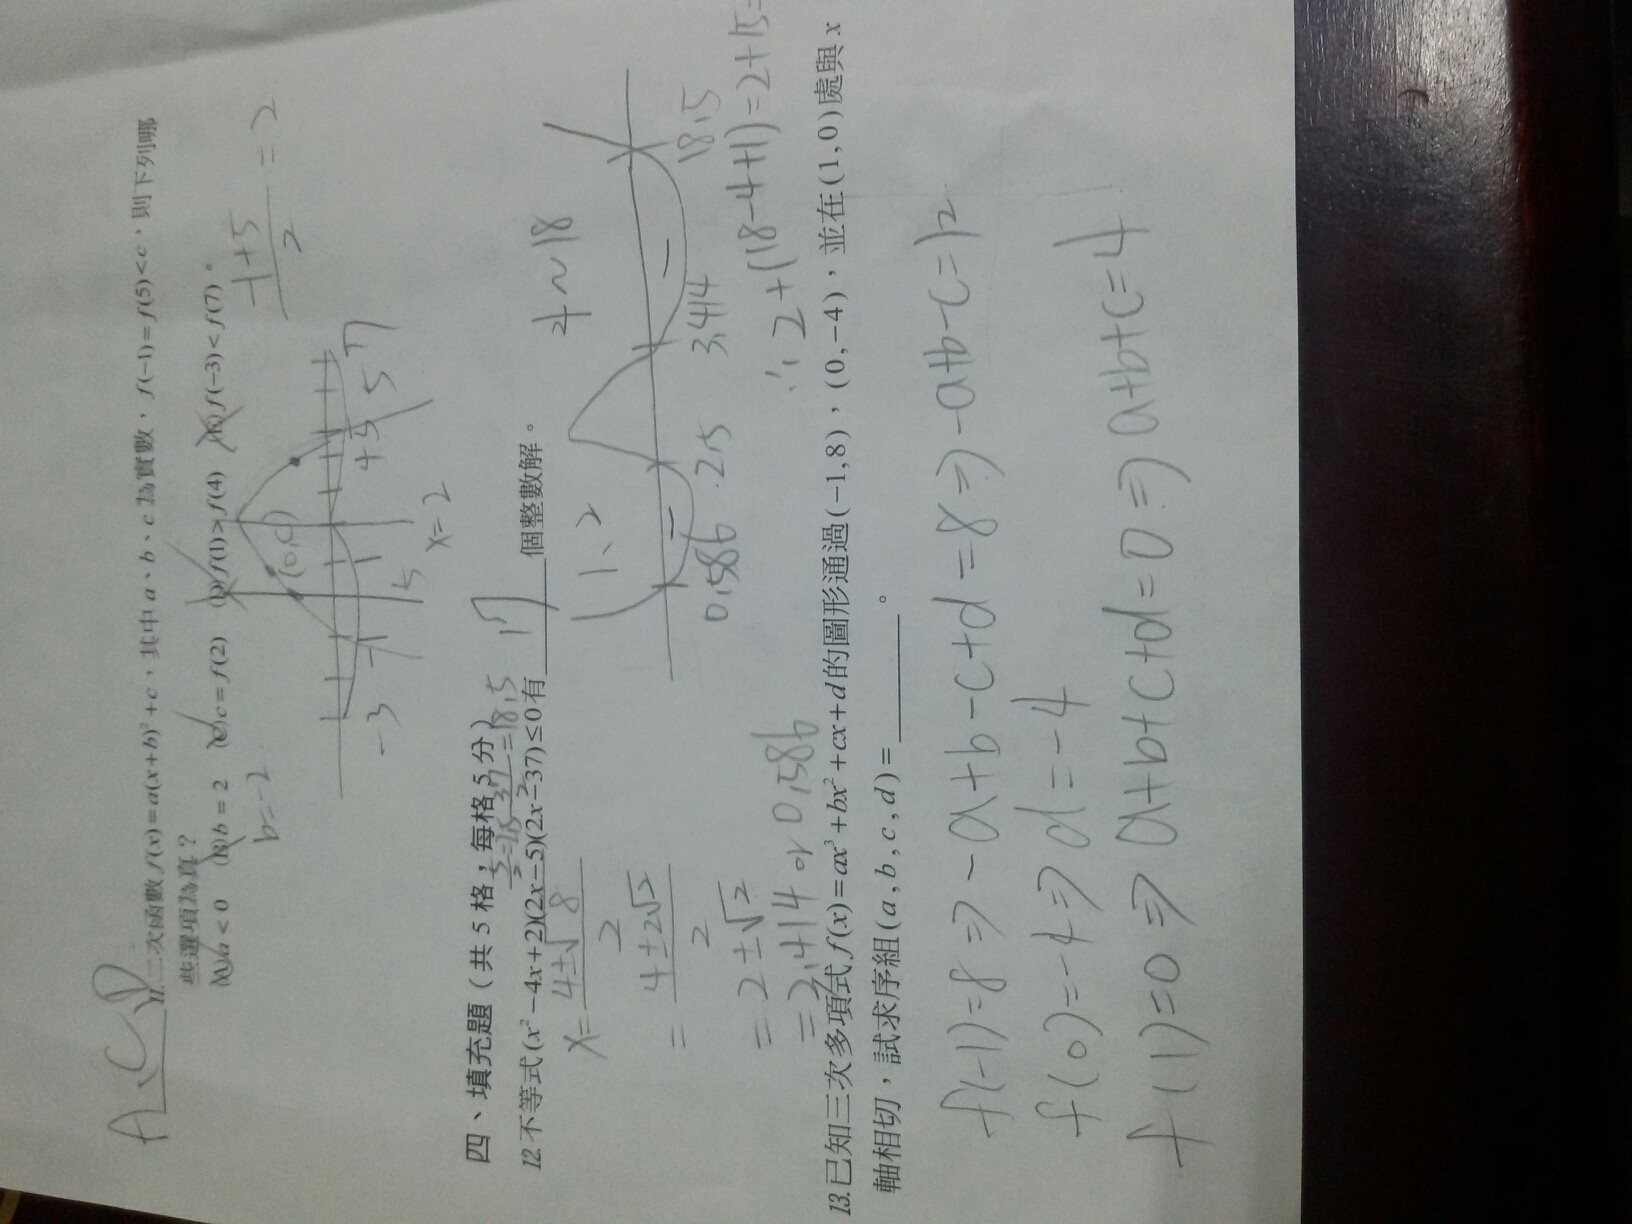 A、C、D
11.二次函數 f(x)=a(x+b)²+c，其中 a、b、c 為實數，f(-1)=f(5)<c，則下列哪
些選項為真？
(A)a<0 (B)b=2 (C)c=f(2) (D)f(1)>f(4) (E)f(-3)<f(7)。
b=-2
-1+5
2
=2
(0,c)
-3
-1
5
+5
5 7
x=2
四、填充題（共 5 格，每格 5 分）
12.不等式(x²-4x+2)(2x-5)(2x-37)≤0 有 17 個整數解。
=18.5
x= 4±√8
2
= 4±2√2
2
= 2±√2
= 3.414 or 0.586
1、2
4~18
0.586
2.5
3.414
18.5
∴ 2+(18-4+1)=2+15=
13.已知三次多項式 f(x)=ax³+bx²+cx+d 的圖形通過(-1,8)，(0,-4)，並在(1,0)處與 x
軸相切，試求序組(a,b,c,d)=________。
f(-1)=8⇒-a+b-c+d=8⇒-a+b-c=12
f(0)=-4⇒d=-4
f(1)=0⇒a+b+c+d=0⇒a+b+c=4